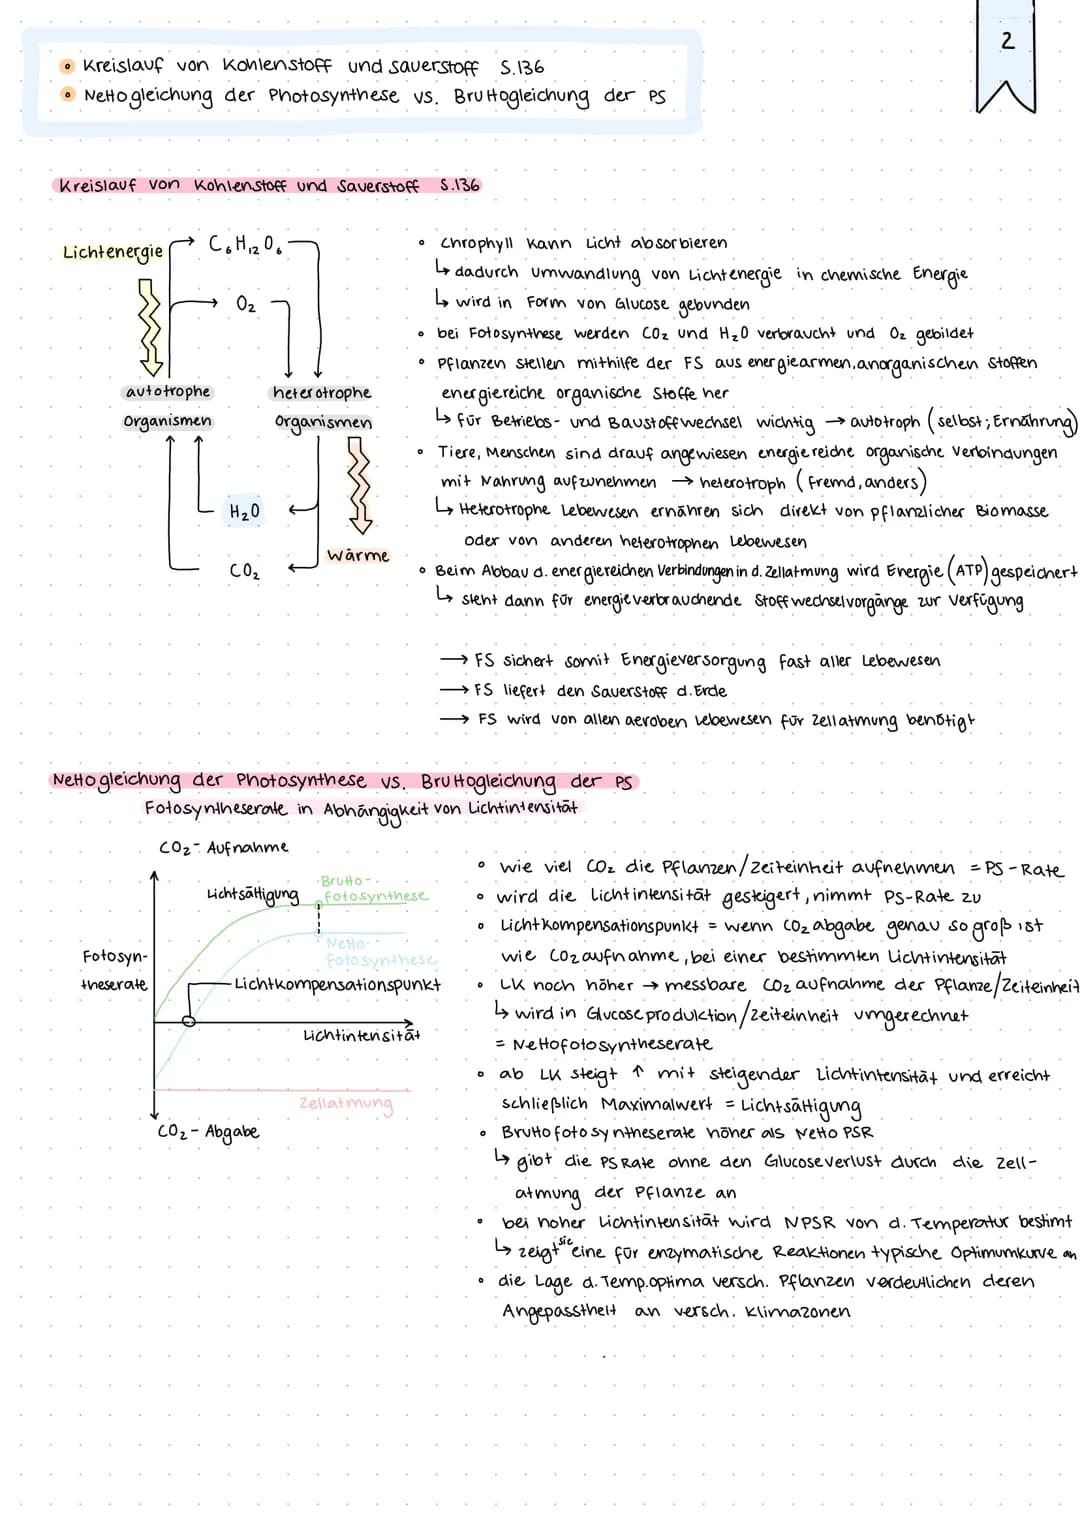 2
Kreislauf von Kohlenstoff und Sauerstoff S.136
Nettogleichung der Photosynthese vs. Bruttogleichung der PS
Kreislauf von Kohlenstoff und Sauerstoff S.136
Lichtenergie
C₆H₁₂O₆
O₂
autotrophe
Organismen
heterotrophe
Organismen
H₂O
CO₂
Wärme
• Chrophyll kann Licht absorbieren
↳ dadurch Umwandlung von Lichtenergie in chemische Energie
↳ wird in Form von Glucose gebunden
• bei Fotosynthese werden CO₂ und H₂O verbraucht und O₂ gebildet
• Pflanzen stellen mithilfe der FS aus energiearmen, anorganischen Stoffen
energiereiche organische Stoffe her
↳ für Betriebs- und Baustoffwechsel wichtig → autotroph (selbst; Ernährung)
• Tiere, Menschen sind drauf angewiesen energiereiche organische Verbindungen
mit Nahrung aufzunehmen → heterotroph (fremd, anders)
↳ Heterotrophe Lebewesen ernähren sich direkt von pflanzlicher Biomasse
oder von anderen heterotrophen Lebewesen
• Beim Abbau d. energiereichen Verbindungen in d. Zellatmung wird Energie (ATP) gespeichert
↳ steht dann für energieverbrauchende Stoffwechselvorgänge zur Verfügung
→ FS sichert somit Energieversorgung fast aller Lebewesen
→ FS liefert den Sauerstoff d. Erde
→ FS wird von allen aeroben Lebewesen für Zellatmung benötigt
Nettogleichung der Photosynthese vs. Bruttogleichung der PS
Fotosyntheserate in Abhängigkeit von Lichtintensität
CO₂- Aufnahme
Lichtsättigung
Brutto-
Fotosynthese
Netto-
Fotosynthese
Fotosyn-
theserate
Lichtkompensationspunkt
Lichtintensität
Zellatmung
CO₂- Abgabe
• wie viel CO₂ die Pflanzen/Zeiteinheit aufnehmen = PS-Rate
• wird die Lichtintensität gesteigert, nimmt PS-Rate zu
• Lichtkompensationspunkt = wenn CO₂abgabe genau so groß ist
wie CO₂aufnahme, bei einer bestimmten Lichtintensität
• LK noch höher → messbare CO₂aufnahme der Pflanze/Zeiteinheit
↳ wird in Glucoseproduktion/Zeiteinheit umgerechnet
= Nettofotosyntheserate
• ab LK steigt ↑ mit steigender Lichtintensität und erreicht
schließlich Maximalwert = Lichtsättigung
• Bruttofotosyntheserate höher als Netto PSR
↳ gibt die PS Rate ohne den Glucoseverlust durch die Zell-
atmung der Pflanze an
• bei hoher Lichtintensität wird NPSR von d. Temperatur bestimt
↳ zeigt sie eine für enzymatische Reaktionen typische Optimumkurve an
• die Lage d. Temp.optima versch. Pflanzen verdeutlichen deren
Angepasstheit an versch. Klimazonen